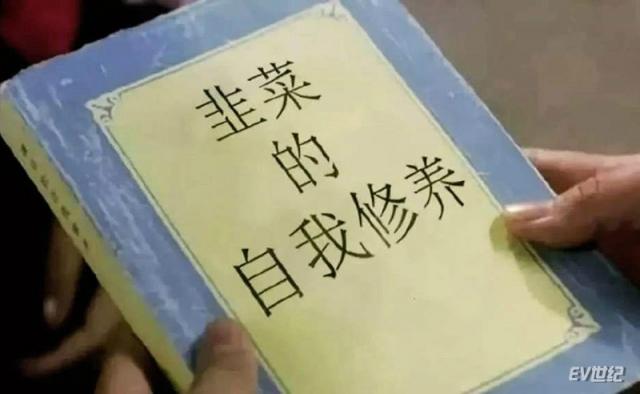 韭菜
的
自我修养
EV世纪